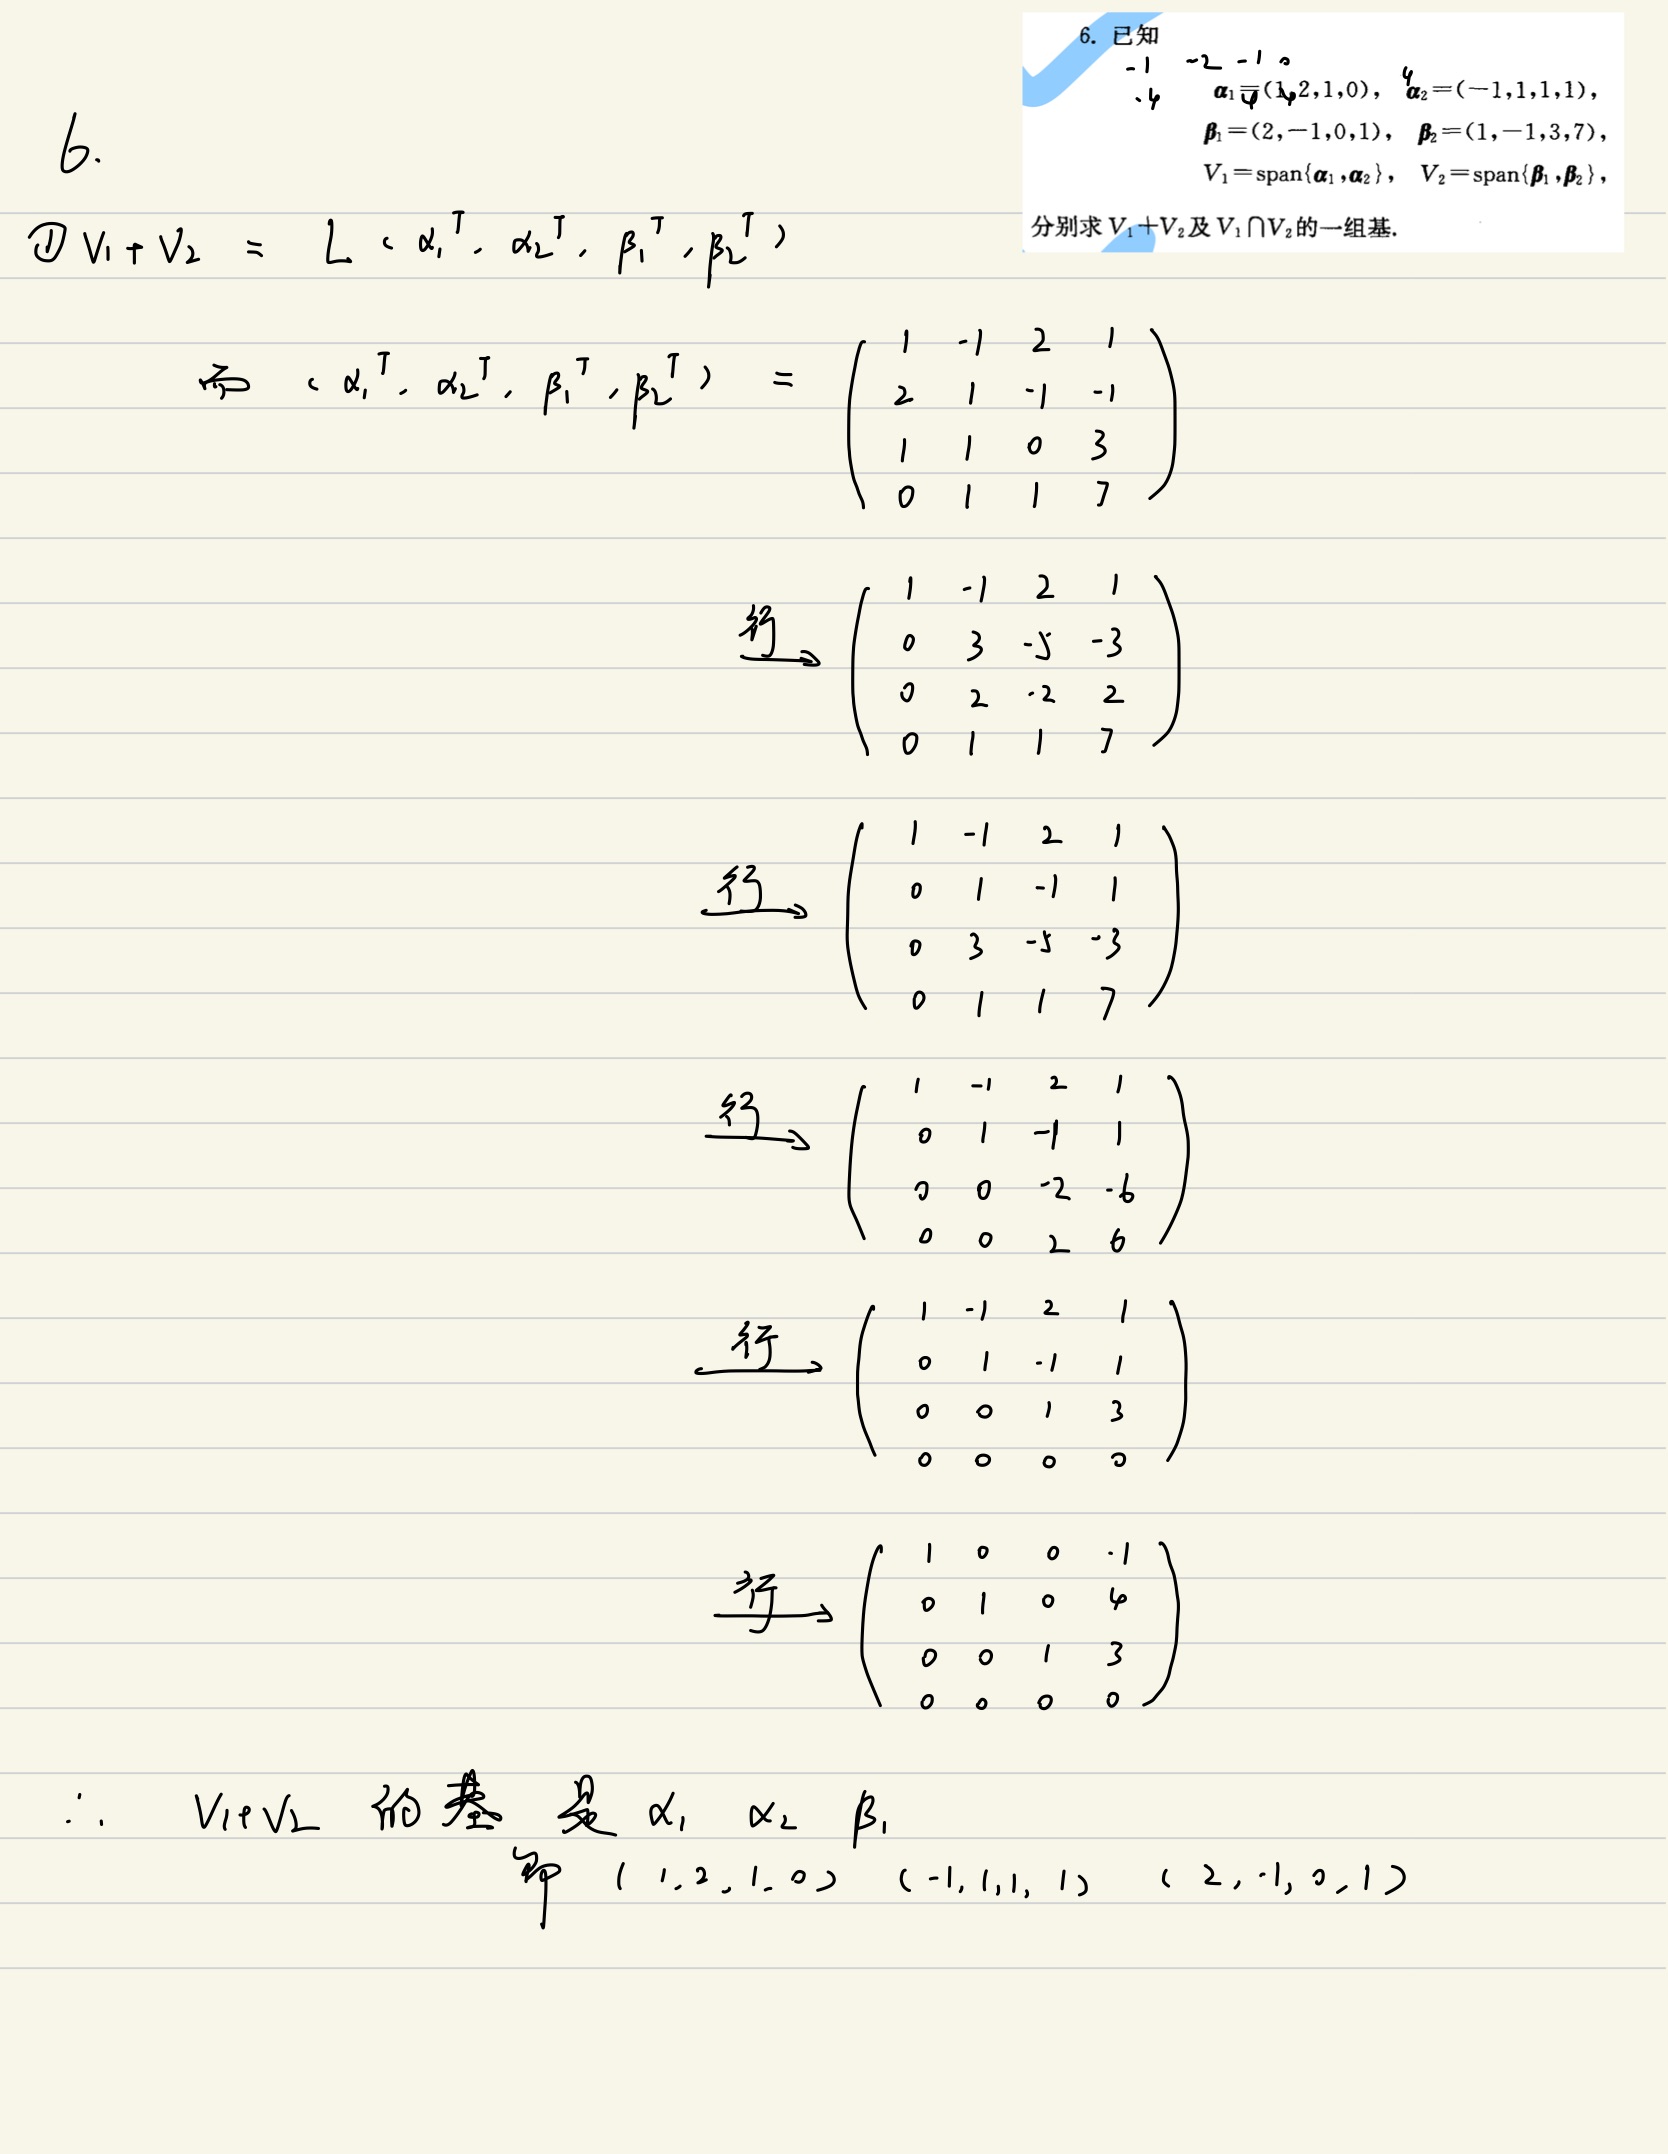 6. 已知
-1 -2 -1 0
-4 4 4 4
α₁=(1,2,1,0), α₂=(-1,1,1,1),
β₁=(2,-1,0,1), β₂=(1,-1,3,7),
V₁=span{α₁,α₂}, V₂=span{β₁,β₂},
分别求V₁+V₂及V₁∩V₂的一组基.
6.
① V₁+V₂ = L(α₁ᵀ, α₂ᵀ, β₁ᵀ, β₂ᵀ)
而 (α₁ᵀ, α₂ᵀ, β₁ᵀ, β₂ᵀ) =
1 -1 2 1
2 1 -1 -1
1 1 0 3
0 1 1 7
行→
1 -1 2 1
0 3 -5 -3
0 2 -2 2
0 1 1 7
行→
1 -1 2 1
0 1 -1 1
0 3 -5 -3
0 1 1 7
行→
1 -1 2 1
0 1 -1 1
0 0 -2 -6
0 0 2 6
行→
1 -1 2 1
0 1 -1 1
0 0 1 3
0 0 0 0
行→
1 0 0 -1
0 1 0 4
0 0 1 3
0 0 0 0
∴ V₁+V₂ 的基是 α₁ α₂ β₁
即 (1,2,1,0) (-1,1,1,1) (2,-1,0,1)